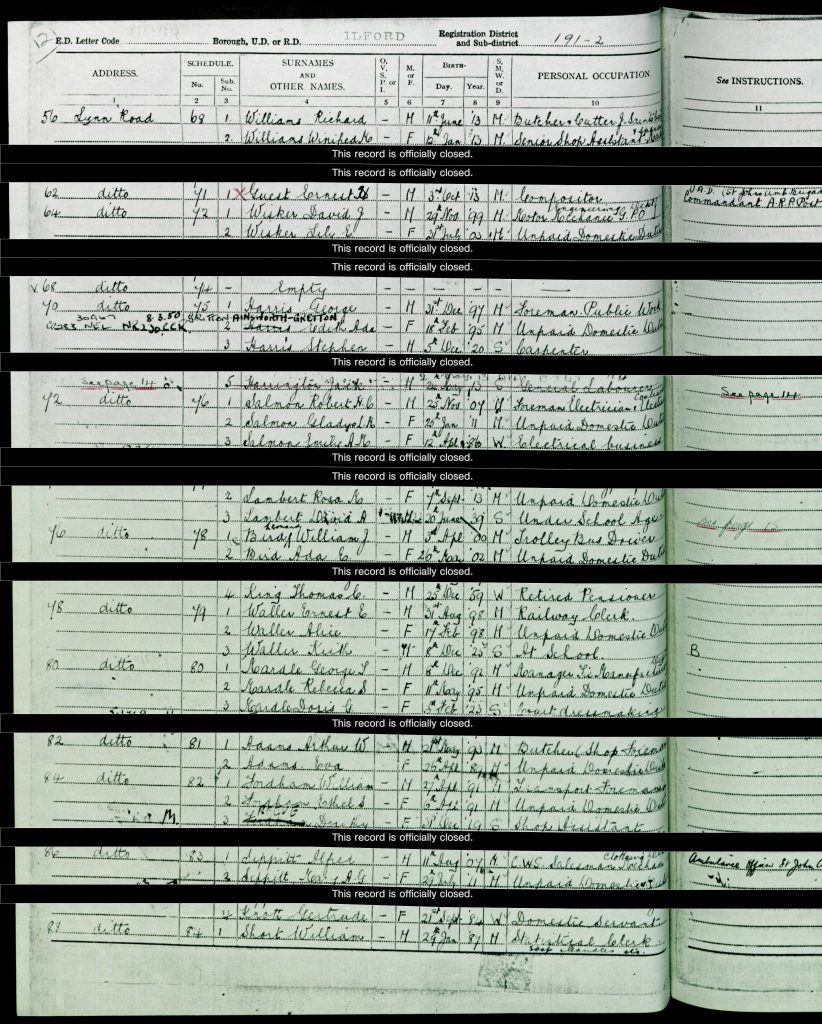 12
E.D. Letter Code Borough, U.D. or R.D. ILFORD Registration District and Sub-district 191-2
ADDRESS. SCHEDULE. No. Sub. No. SURNAMES AND OTHER NAMES. O., V., S., P. or I. M. or F. BIRTH- Day. Year. S., M., W. or D. PERSONAL OCCUPATION. See INSTRUCTIONS.
1 2 3 4 5 6 7 8 9 10 11
56 Lynn Road 68 1 Williams Richard - M 11th June '13 M Butcher Cutter J.
2 Williams Winifred M - F Jan '13 M Senior Shop Assistant
This record is officially closed.
This record is officially closed.
62 ditto 71 1 X Guest Ernest - M 3rd Oct 13 M Compositor (St Johns Amb Brigade
64 ditto 72 1 Wisker David J - M 29th Nov 99 M Motor Mechanic G.P.O. Engineering Commandant A.R.P. Post
2 Wisker Lily E - F July 03 M Unpaid Domestic Duties
This record is officially closed.
This record is officially closed.
v. 68 ditto 74 - Empty - - - - -
70 ditto 75 1 Harris George - M 31st Dec '97 M Foreman Public Work
8.3.50 BRITTON AINSWORTH-GRETTON
2 Harris Edith Ada - F 18th Feb 95 M Unpaid Domestic Duties
3 Harris Stephen - M 5th Dec '20 S Carpenter
This record is officially closed.
See page 14 5 Harrington - M S General Labourer See page 14
72 ditto 76 1 Salmon Robert H C - M 25th Nov 07 M Foreman Electrician
2 Salmon Gladys - F 20th Jan 11 M Unpaid Domestic Duties
3 Salmon Emily A M - F 12th Apl 86 W Electrical business
This record is officially closed.
This record is officially closed.
2 Lambert Rosa M - F 7th Sept 13 M Unpaid Domestic Duties
3 Lambert David A - M 20th June 39 S Under School Age see page 15
76 ditto 78 1 Bird William J - M 3rd Apl 00 M Trolley Bus Driver
2 Bird Ada E - F 26th Mar 02 M Unpaid Domestic Duties
This record is officially closed.
4 King Thomas C. - M 25th Dec '59 W Retired Pensioner
78 ditto 79 1 Waller Ernest E - M 31st Aug 98 M Railway Clerk.
2 Waller Alice - F 17th Feb 98 M Unpaid Domestic Duties
3 Waller Keith - M 8th Dec 25 S At School. B
80 ditto 80 1 Mardle George - M 6th Dec 92 M Manager
2 Mardle Rebecca S - F 11th May 95 M Unpaid Domestic Duties
3 Mardle Doris - F Feb 23 S Court dressmaking
This record is officially closed.
82 ditto 81 1 Adams Arthur W - M 21st May 93 M Butcher Shop Foreman
2 Adams Eva - F 25th Apl 89 M Unpaid Domestic Duties
84 ditto 82 1 William - M 27th Apl 91 M Transport Foreman
2 Ethel S - F 6th Apl 91 M Unpaid Domestic Duties
M. 3 - F 31st Dec 19 S Shop Assistant
This record is officially closed.
86 ditto 83 1 Sippitt - M 11th Aug 07 M C.W.S. Salesman Clothing Ambulance Officer St John
2 Sippitt Mary A G - F July 11 M Unpaid Domestic
This record is officially closed.
4 Knott Gertrude - F 21st Sept 84 W Domestic Servant
88 ditto 84 1 Short William - M 29th Jan '87 M Statistical Clerk